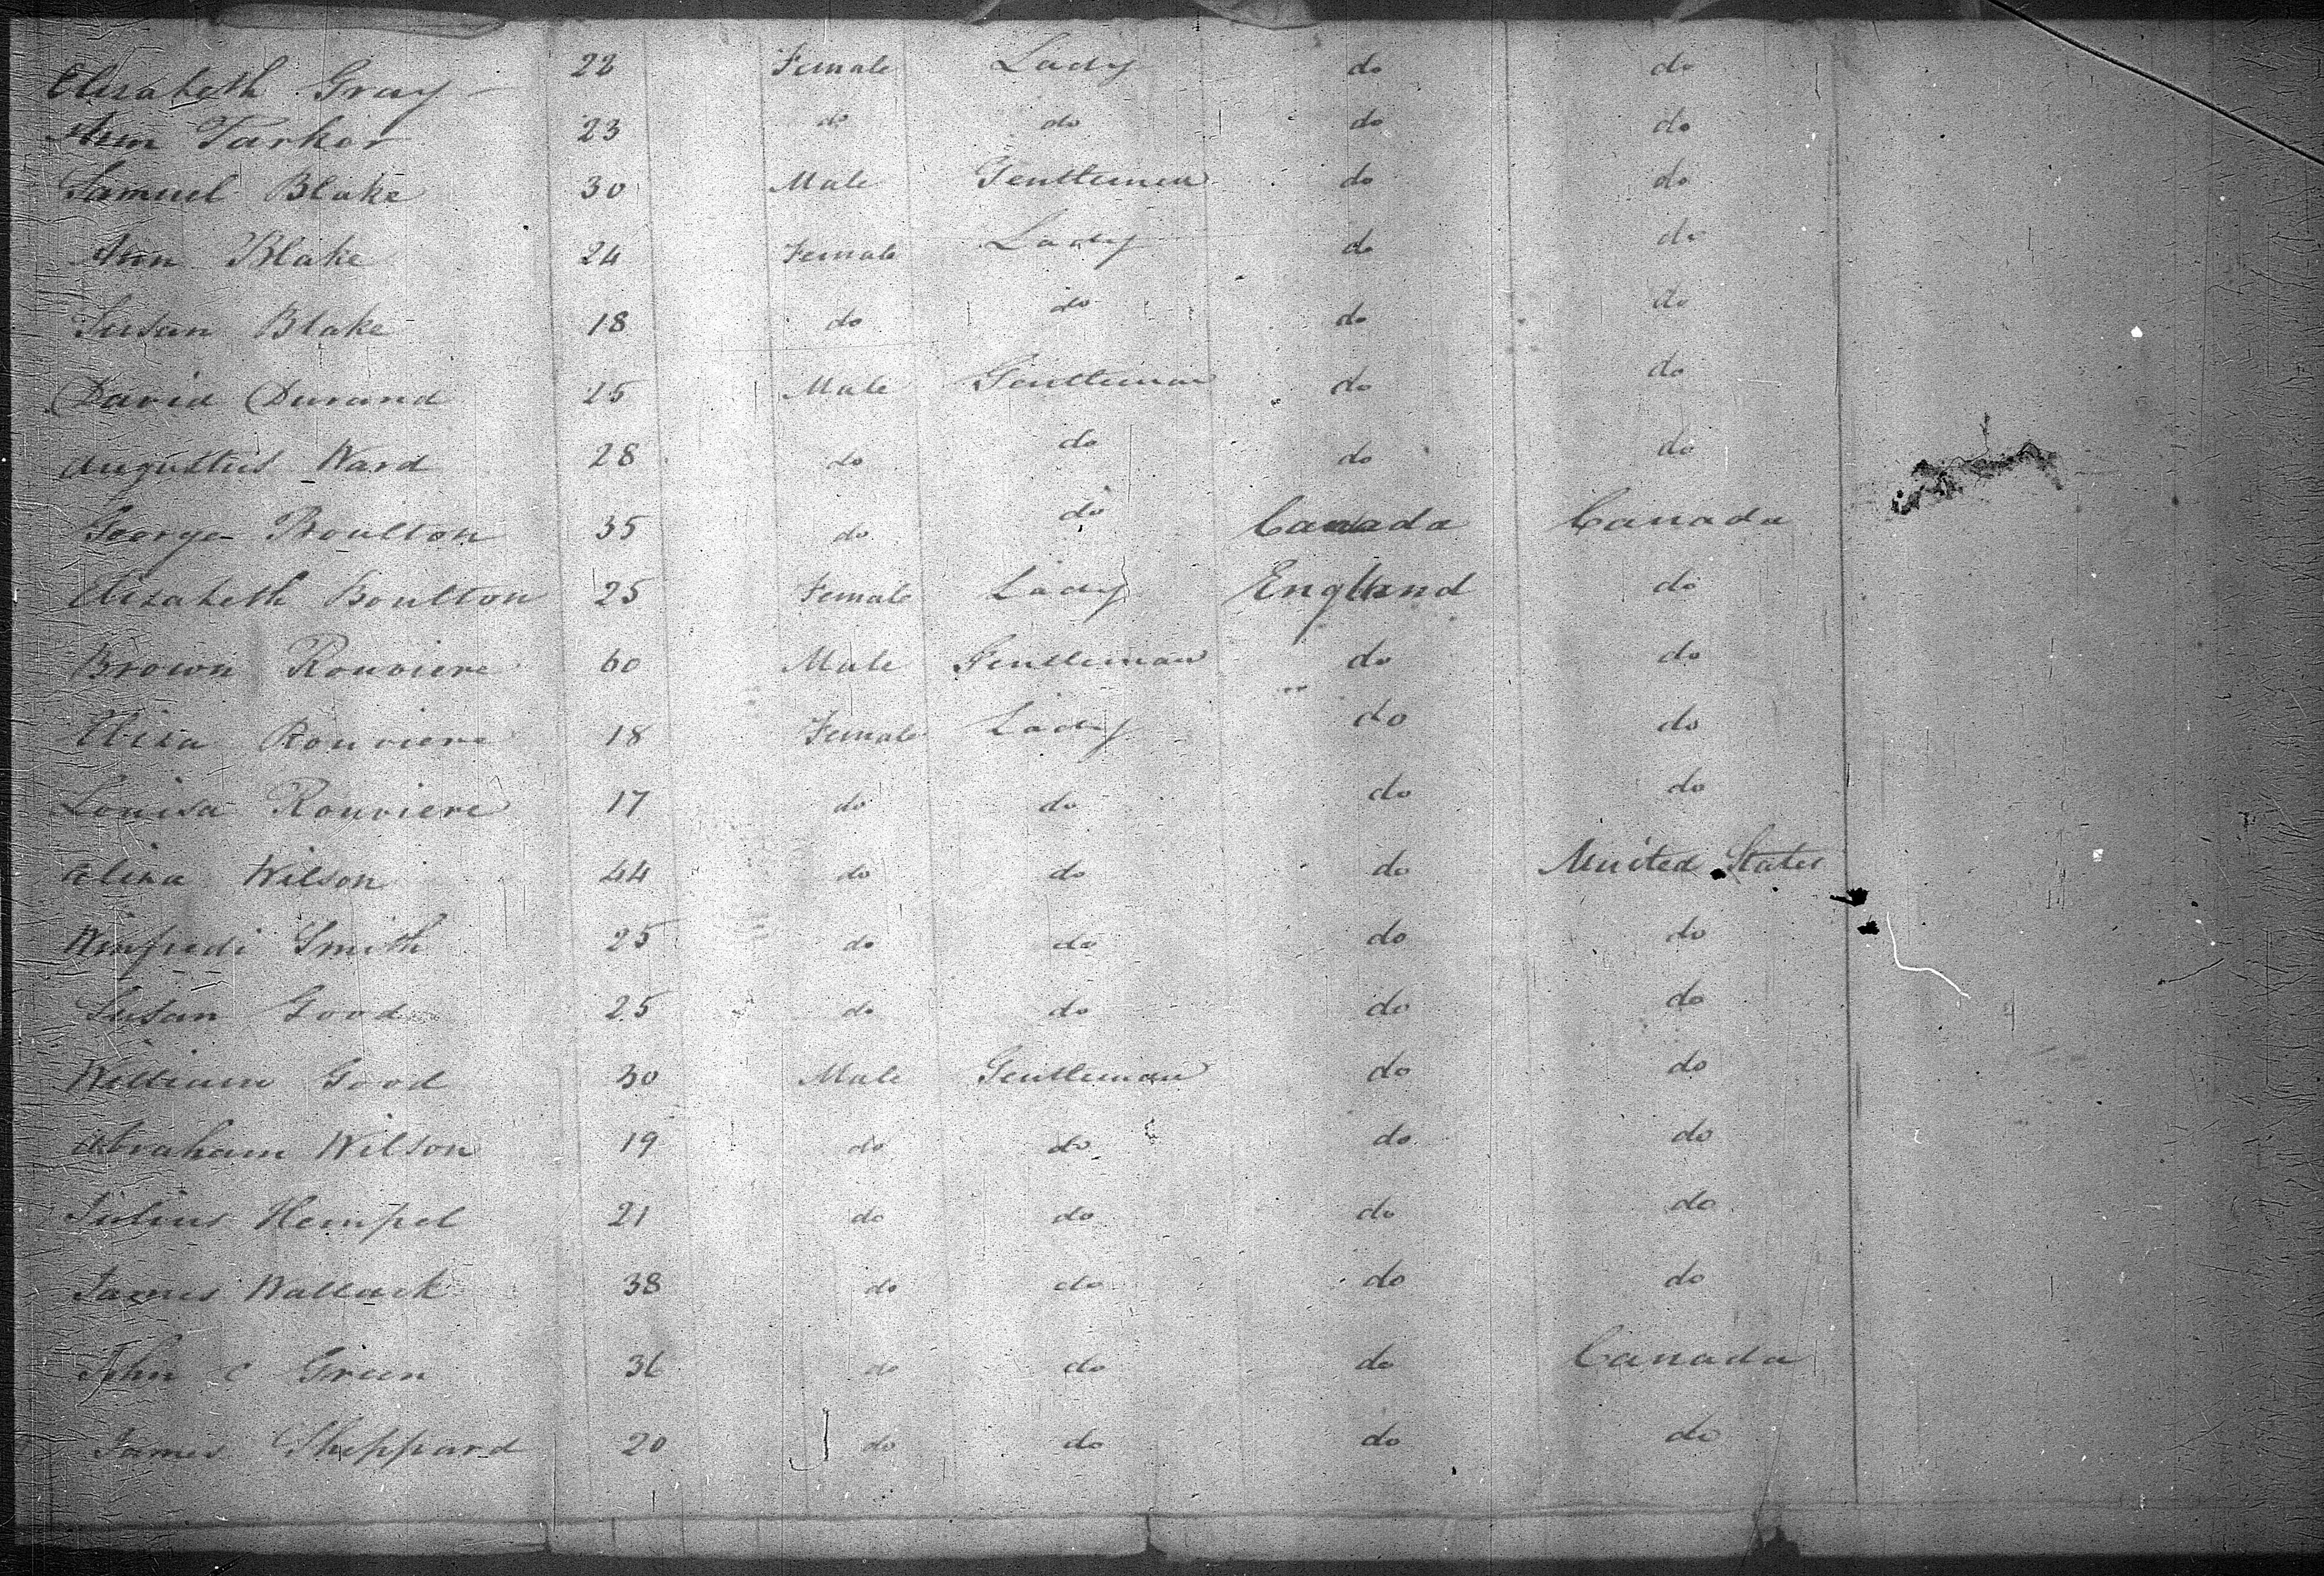 Elizabeth Gray 22 Female Lady do do
Ann Tarkor 23 do do do do
Samuel Blake 30 Male Gentleman do do
Ann Blake 24 Female Lady do do
Susan Blake 18 do do do do
David Durand 25 Male Gentleman do do
Augustus Ward 28 do do do do
George Boulton 35 do do Canada Canada
Elizabeth Boulton 25 Female Lady England do
Brown Rouviere 60 Male Gentleman do do
Eliza Rouviere 18 Female Lady do do
Louisa Rouviere 17 do do do do
Aliza Wilson 44 do do do United States
Winfredi Smith 25 do do do do
Susan Good 25 do do do do
William Good 30 Male Gentleman do do
Abraham Wilson 19 do do do do
Julius Hempel 21 do do do do
James Wallack 38 do do do do
John C Green 36 do do do Canada
James Sheppard 20 do do do do